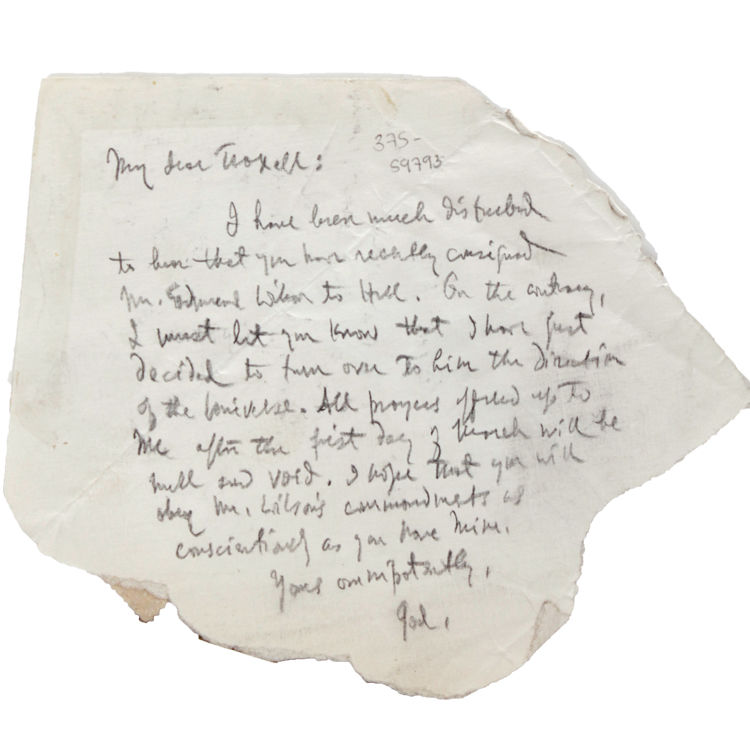 375-
59793
My dear Troxell:
I have been much disturbed
to hear that you have recently consigned
Mr. Edmund Wilson to Hell. On the contrary,
I must let you know that I have just
decided to turn over to him the direction
of the Universe. All prayers offered up to
me after the first day of March will be
null and void. I hope that you will
obey Mr. Wilson's commandments as
conscientiously as you have mine.
Yours omnipotently,
God.